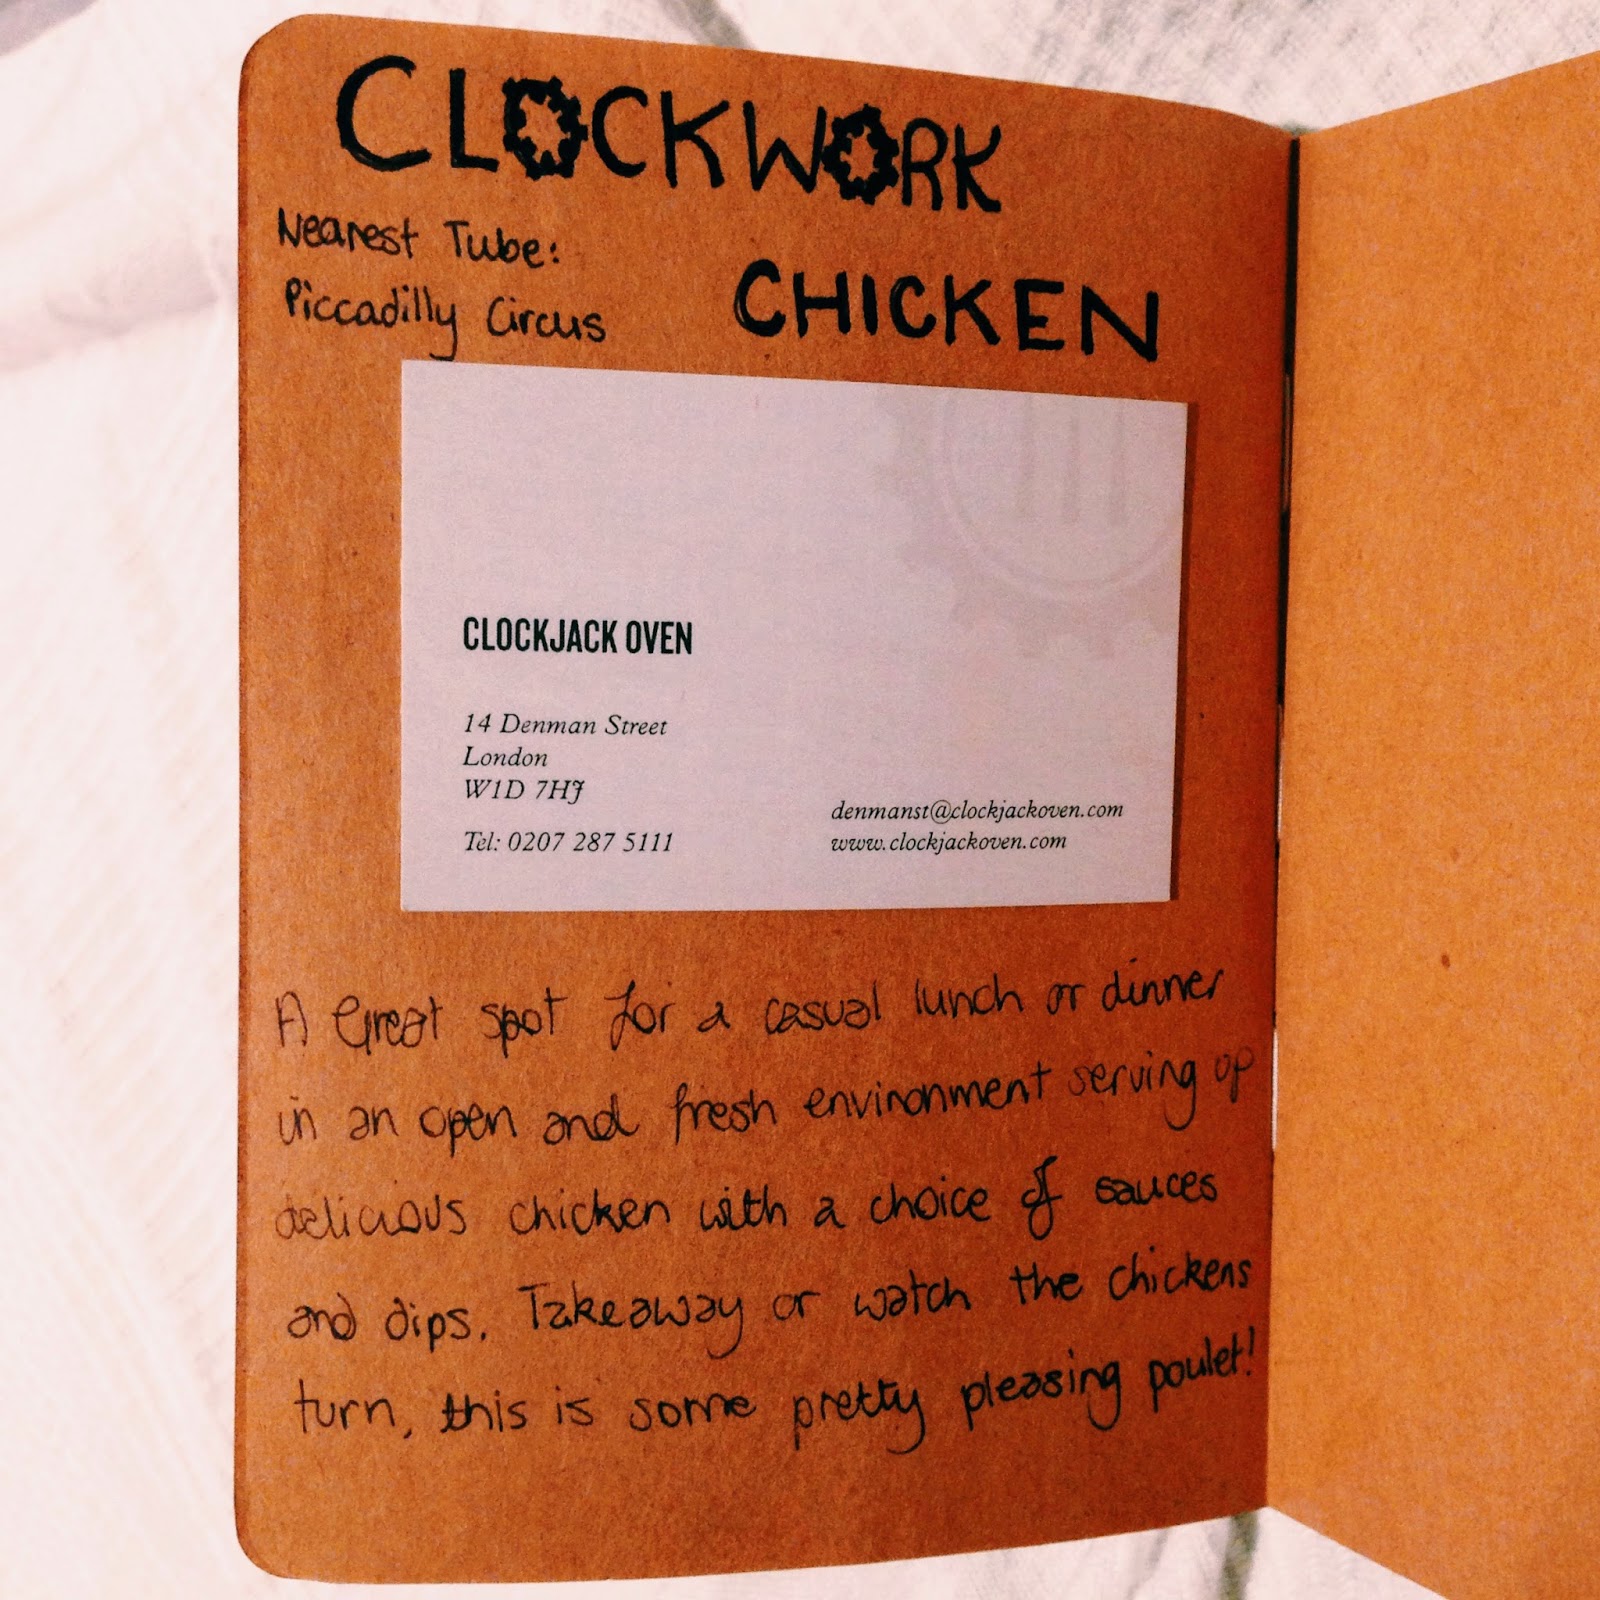 CLOCKWORK
CHICKEN
Nearest Tube:
Piccadilly Circus
CLOCKJACK OVEN
14 Denman Street
London
W1D 7HJ
Tel: 0207 287 5111
denmanst@clockjackoven.com
www.clockjackoven.com
A Great spot for a casual lunch or dinner
in an open and fresh environment serving up
delicious chicken with a choice of sauces
and dips. Takeaway or watch the chickens
turn, this is some pretty pleasing poulet!